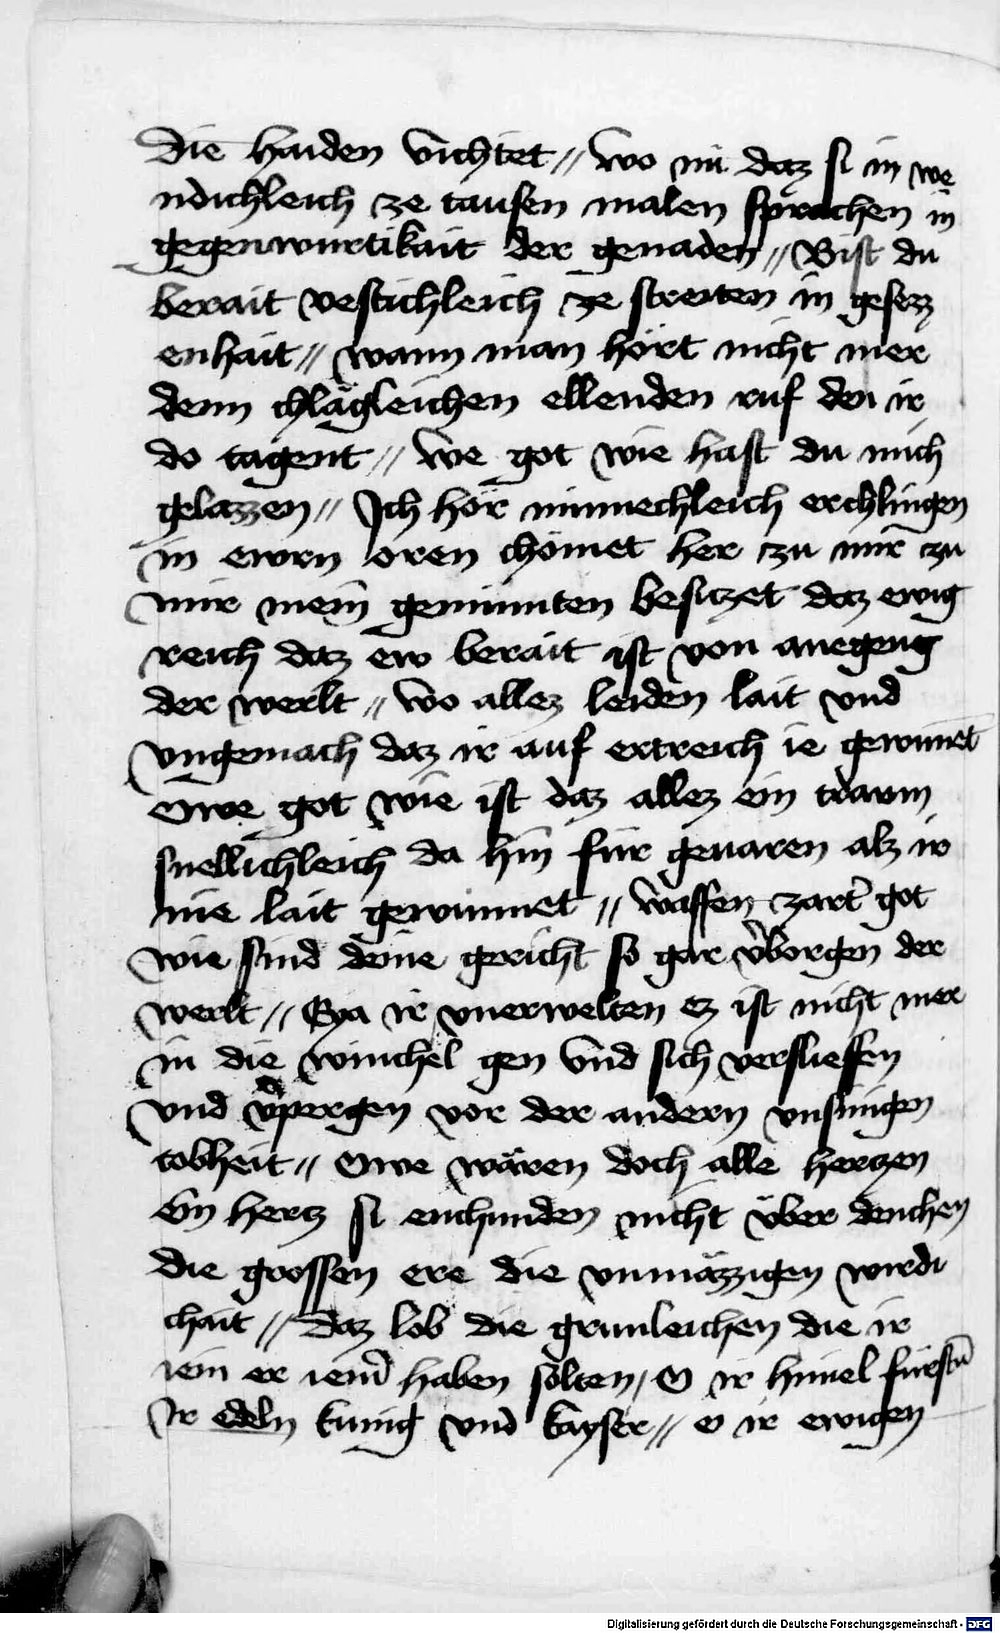 die haiden vichtet // wo nu daz si in we
ndichleich ze tausen malen sprachen in
gegenwurtikait der genaden // Bist du
berait vestichleich ze streiten in gesezz
enhait // wann man hört nicht mer
denn chlägleichen ellenden ruf den ir
do tagent // we got wie hast du mich
gelazzen // Ich hör minnechleich erchlingen
in ewrn oren chömet her zu mir zu
mir mein geminnten besiczet daz ewig
reich daz ew berait ist von anegeng
der werlt // wo allez leiden lait vnd
vngemach daz ir auf ertreich ie gewunet
Owe got wie ist daz allez ein travm
snellichleich da hin für geuaren alz ir
nie lait gewunnet // waffen zart' got
wie sind deine gericht so gar v'borgen der
werlt // Eya ir vnerwelten ez ist nicht mer
in die winchel gen vnd sich versliessen
vnd v'pergen vor der andern vnsinigen
tobheit // Owe wären doch alle herczen
ein hercz si enchunden nicht über denchen
die grossen ere die vnmäzzigen wirdi
chait // daz lob die grunleichen die ir
iem er iemd haben solten / O ir himel fürstn̄
Ir edeln kunig vnd kayser // o ir ewigen
Digitalisierung gefördert durch die Deutsche Forschungsgemeinschaft - DFG